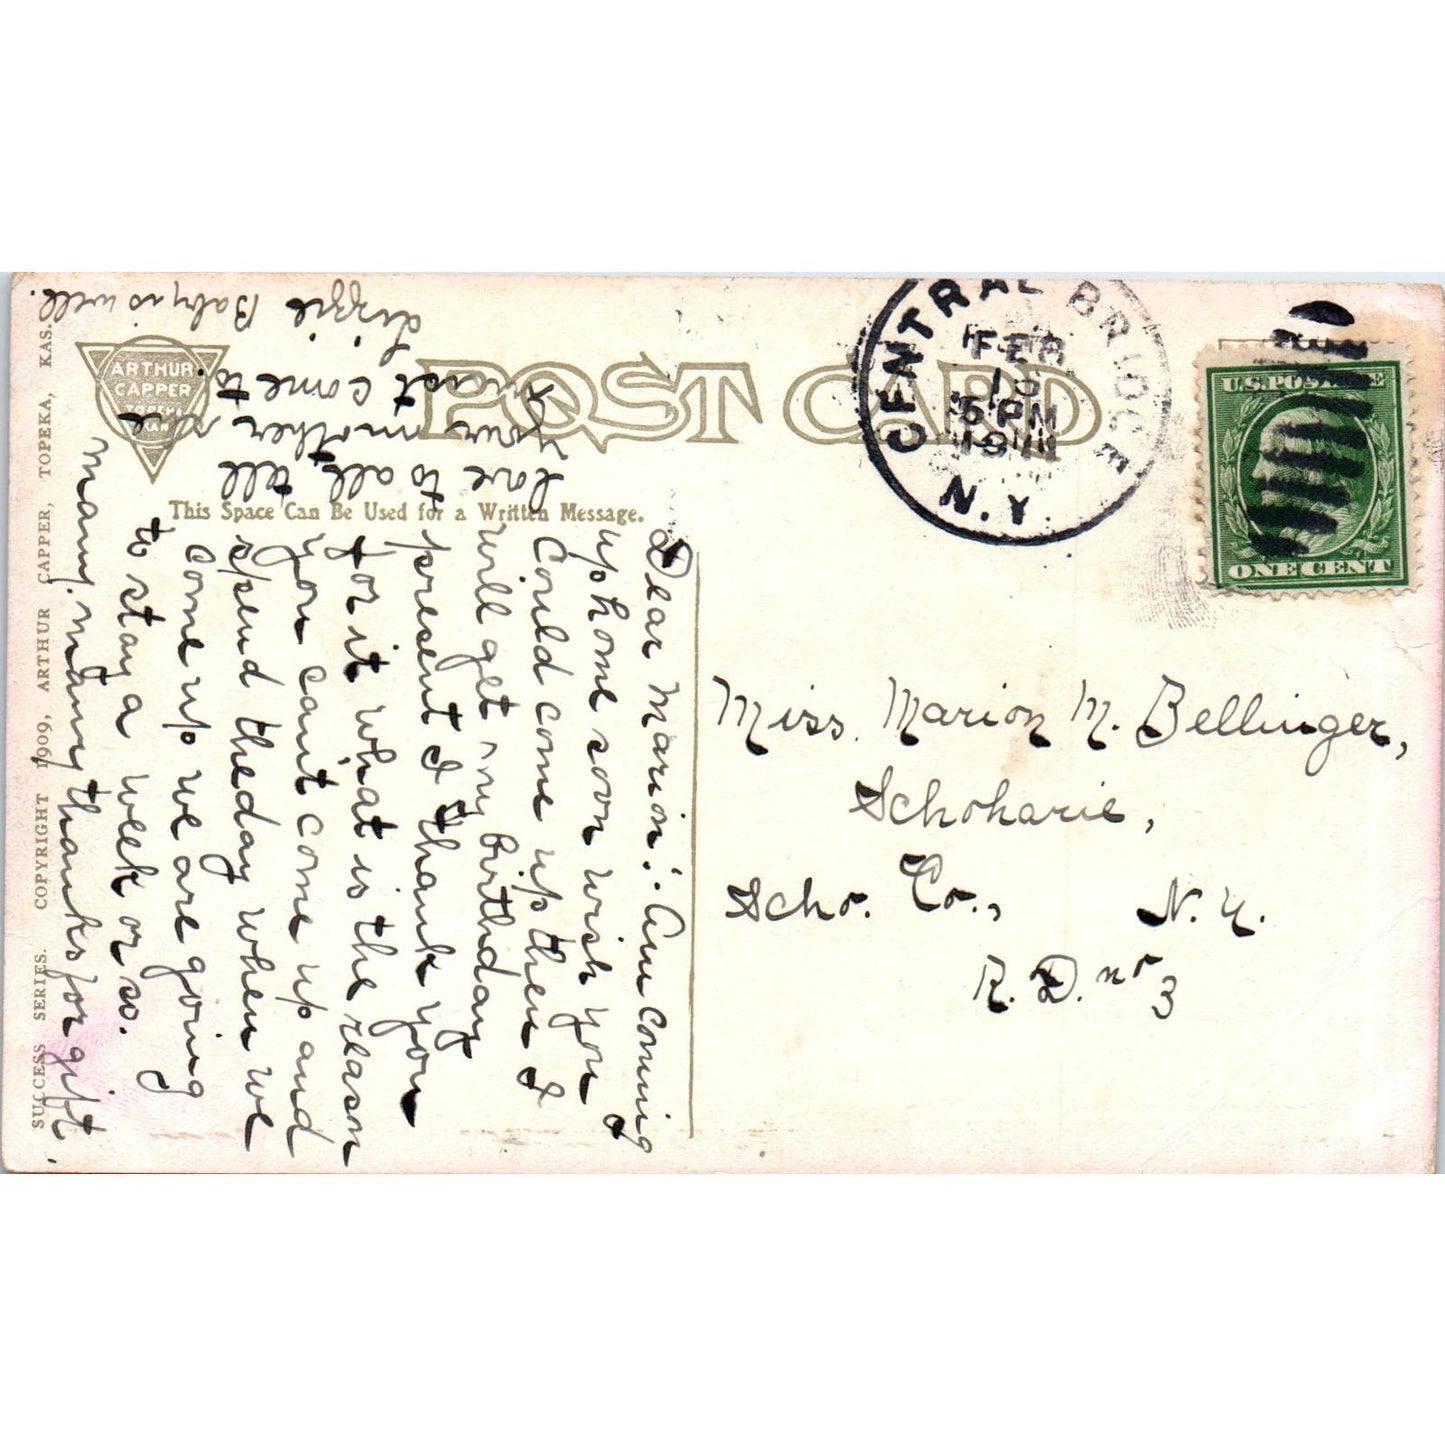 POST CARD
ARTHUR
CAPPER
This Space Can Be Used for a Written Message.
SUCCESS SERIES. COPYRIGHT 1909, ARTHUR CAPPER, TOPEKA, KAS.
CENTRAL BRIDGE
FEB
5 PM
N.Y.
U.S. POSTAGE
ONE CENT
Miss. Marion M. Bellinger,
Schoharie,
Scho. Co., N.Y.
R. D. no 3
Dear Marion:- Am coming
up home soon wish you
Could come up then I
will get my birthday
present I thank you
for it what is the reason
you cant come up and
spend the day when we
come up we are going
to stay a week or so.
many, many thanks for gift.
Love to all tell
your mother she
must come to
Lizzie Baby is well.